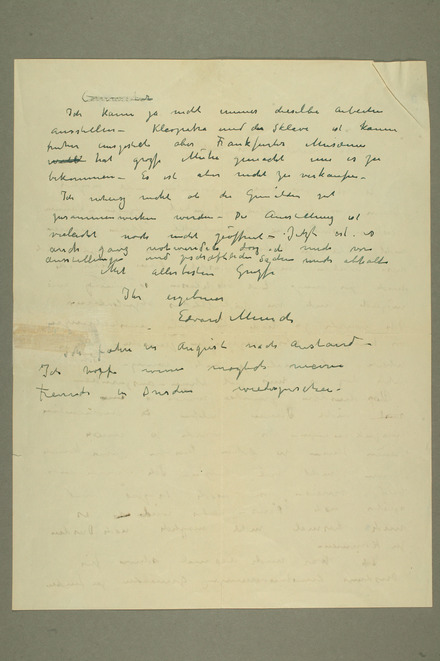 Ich kann ja nicht immer dieselbe Arbeiten
ausstellen – Kleopatra und der Sklave ist kaum
früher ausgestellt aber Frankfurter Museum
hat große Mühe gemacht um es zu
bekommen – Es ist aber nicht zu verkaufen –
Ich nicht ob die Gemälden gut
zusammenwirken werden – Die Ausstellung ist
vielleicht noch nicht geöffnet – Jetzt ist es
auch ganz nothwendig dass ich mich von
Ausstellungen und geschäftlichen Sachen mich abhalte
Mit allerbesten Gruss
Ihr ergebener
Edvard Munch
Ich fahre im August nach Ausland –
Ich hoffe wenn möglich meine
Freunde in Dresden wiederzusehen –